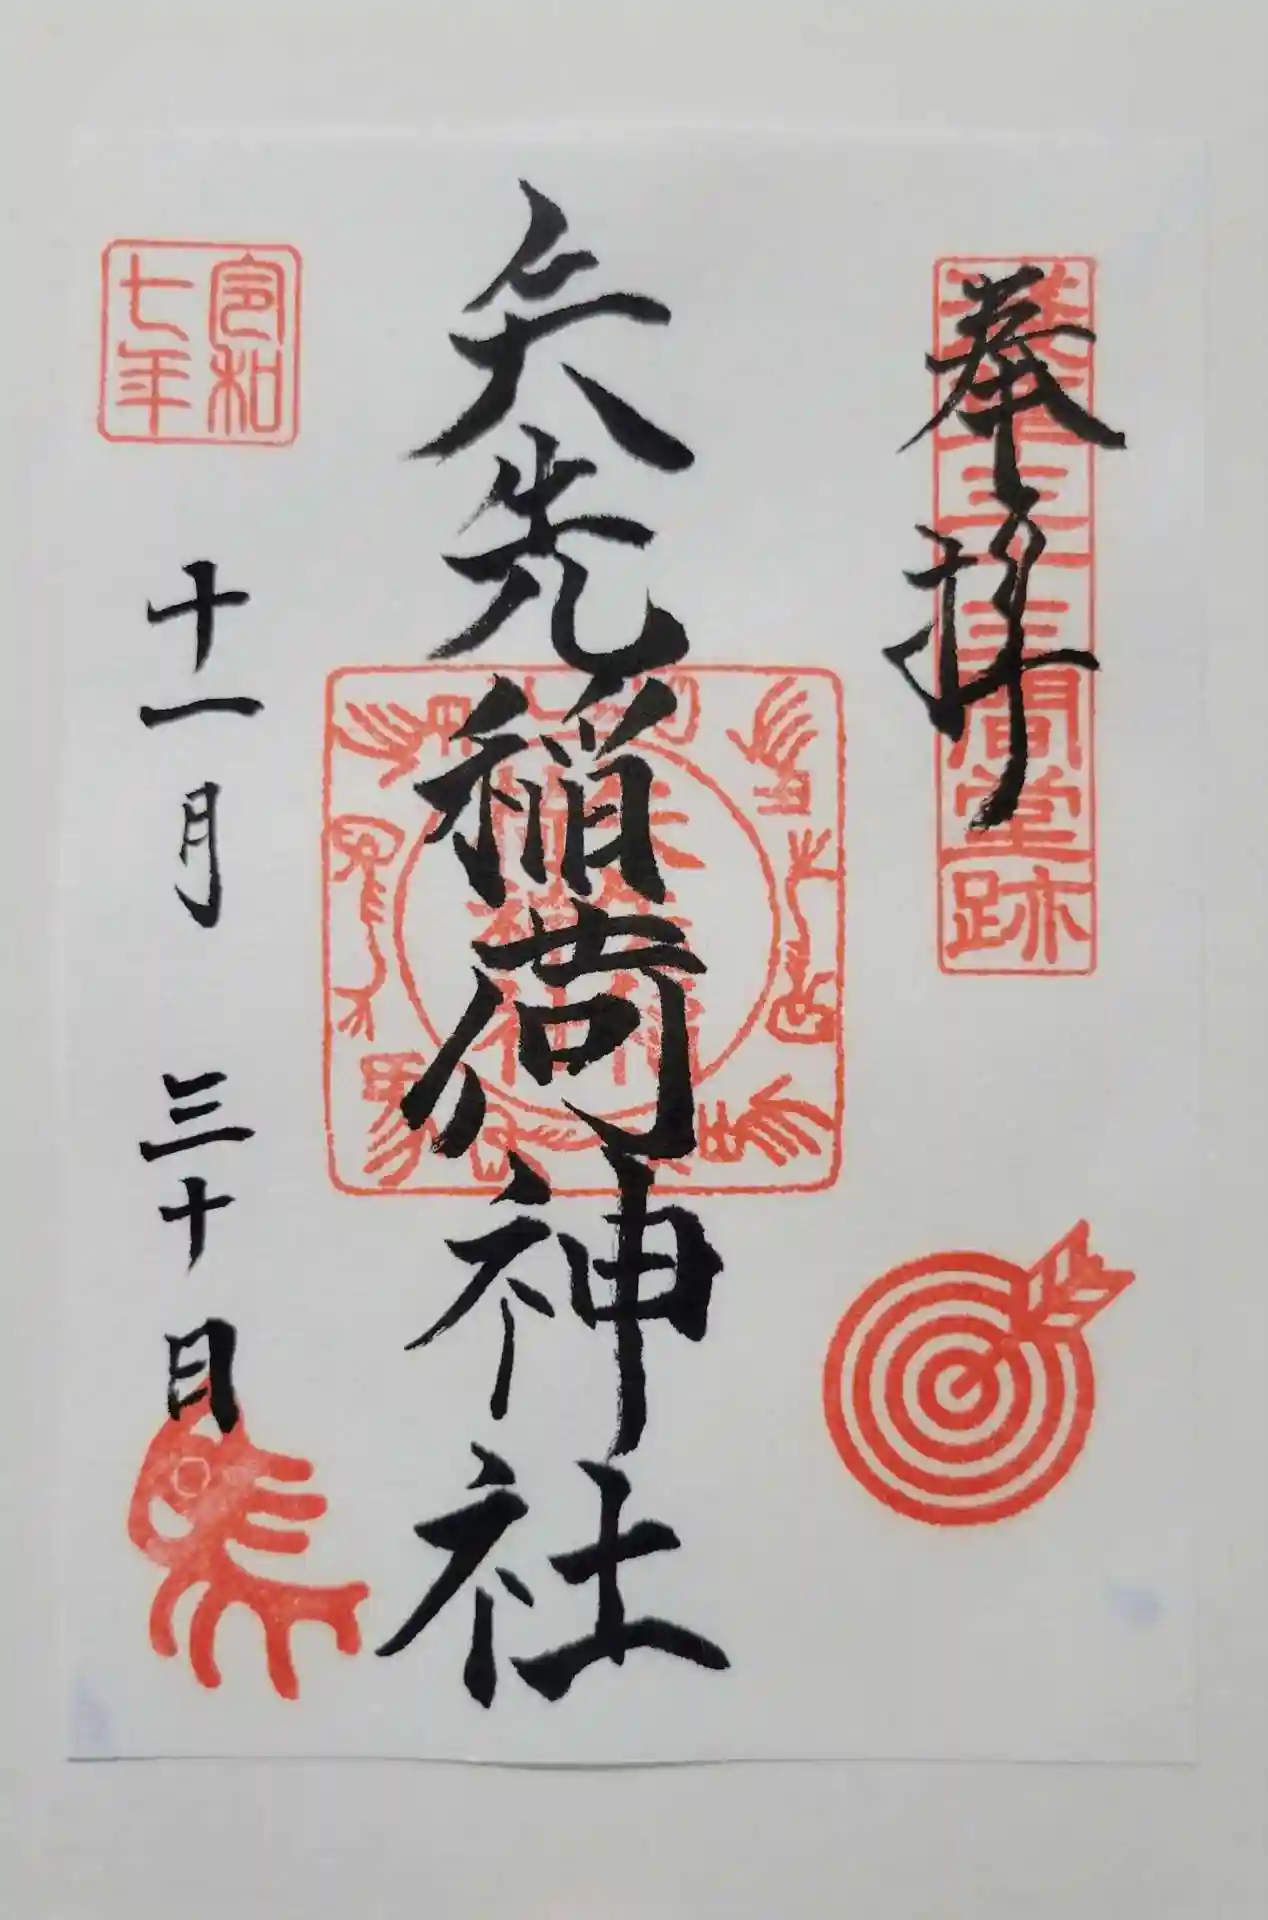 奉拝
浅草三十三間堂跡
矢先稲荷神社
令和
七年
十一月 三十日